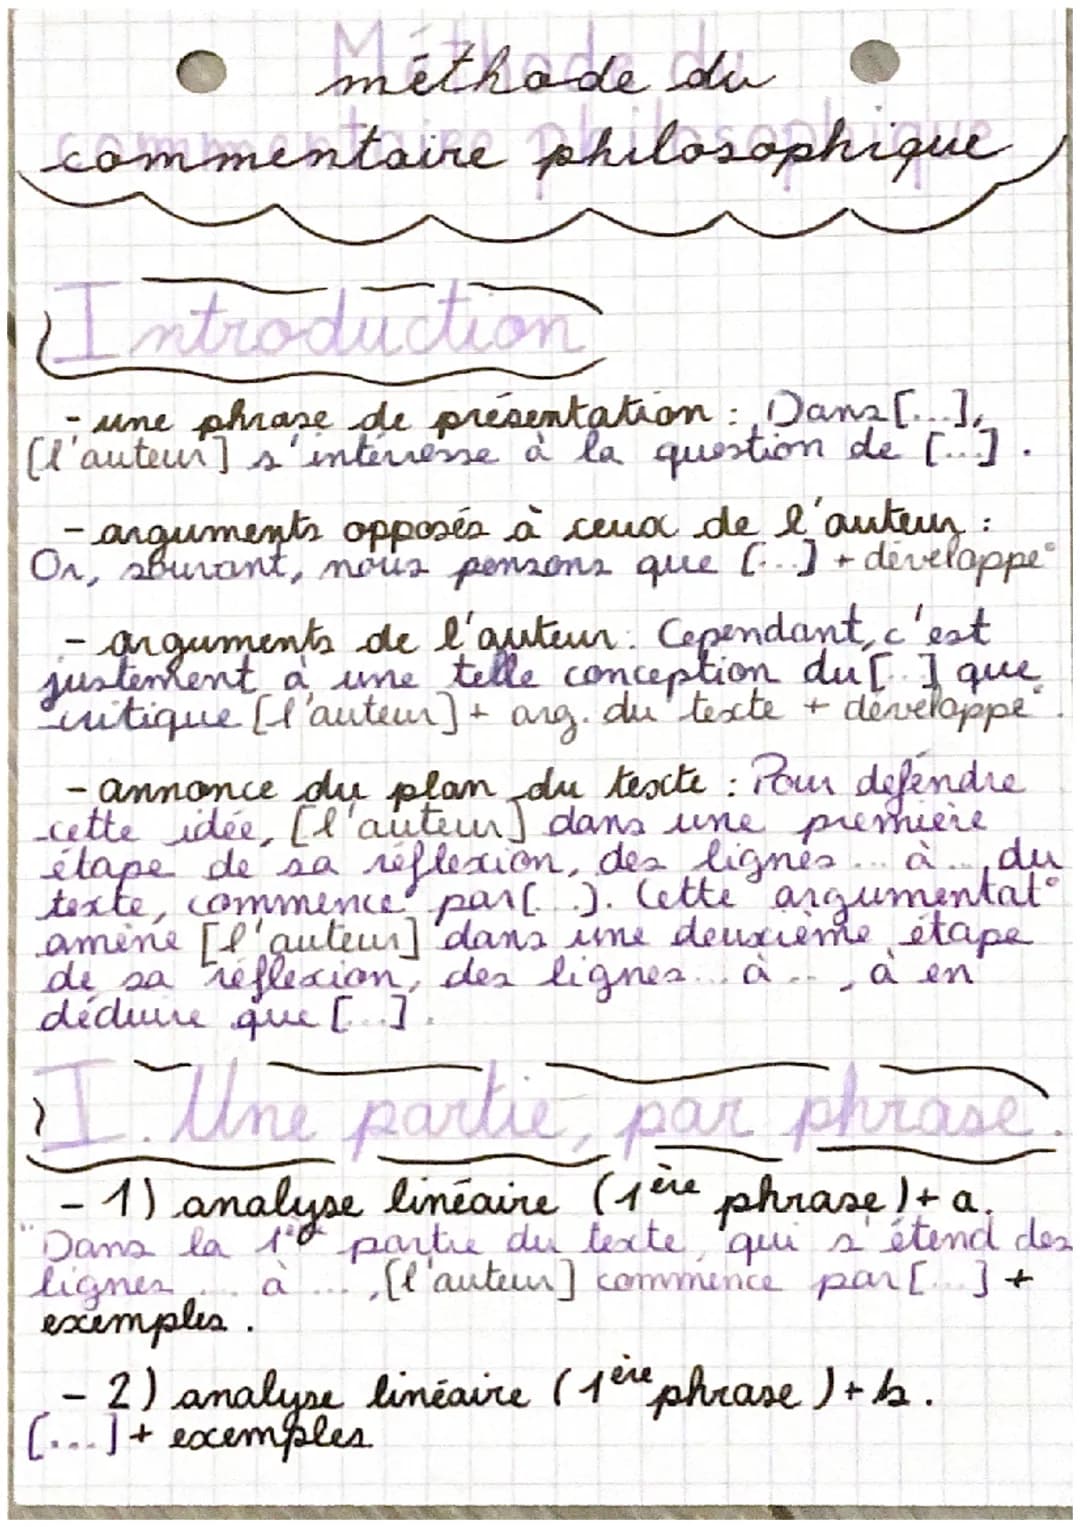 méthode du
commentaire philosophique
Introduction
- une phrase de présentation : Dans [...],
[l'auteur] s'intéresse à la question de [...].
- arguments opposés à ceux de l'auteur :
Or, souvent, nous pensons que [...] + développe°
- arguments de l'auteur : Cependant, c'est
justement à une telle conception du [...] que
critique [l'auteur] + arg. du texte + développe°.
- annonce du plan du texte : Pour défendre
cette idée, [l'auteur] dans une première
étape de sa réflexion, des lignes ... à ... du
texte, commence par [...]. Cette argumentat°
amène [l'auteur] dans une deuxième étape
de sa réflexion, des lignes ... à ..., à en
déduire que [...].
I. Une partie, par phrase.
- 1) analyse linéaire (1ère phrase) + a.
"Dans la 1ère partie du texte, qui s'étend des
lignes ... à ..., [l'auteur] commence par [...] +
exemples.
- 2) analyse linéaire (1ère phrase) + b.
[...] + exemples